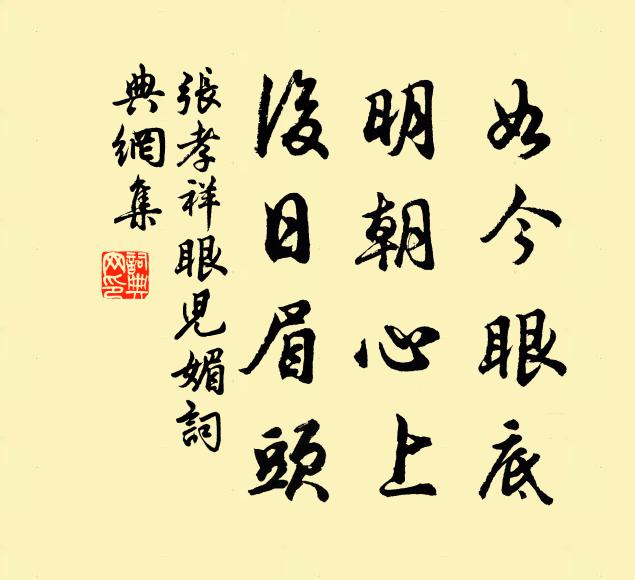 如今眼底
明朝心上
後日眉頭
張孝祥眼児媚詞
典網集
詞典網印